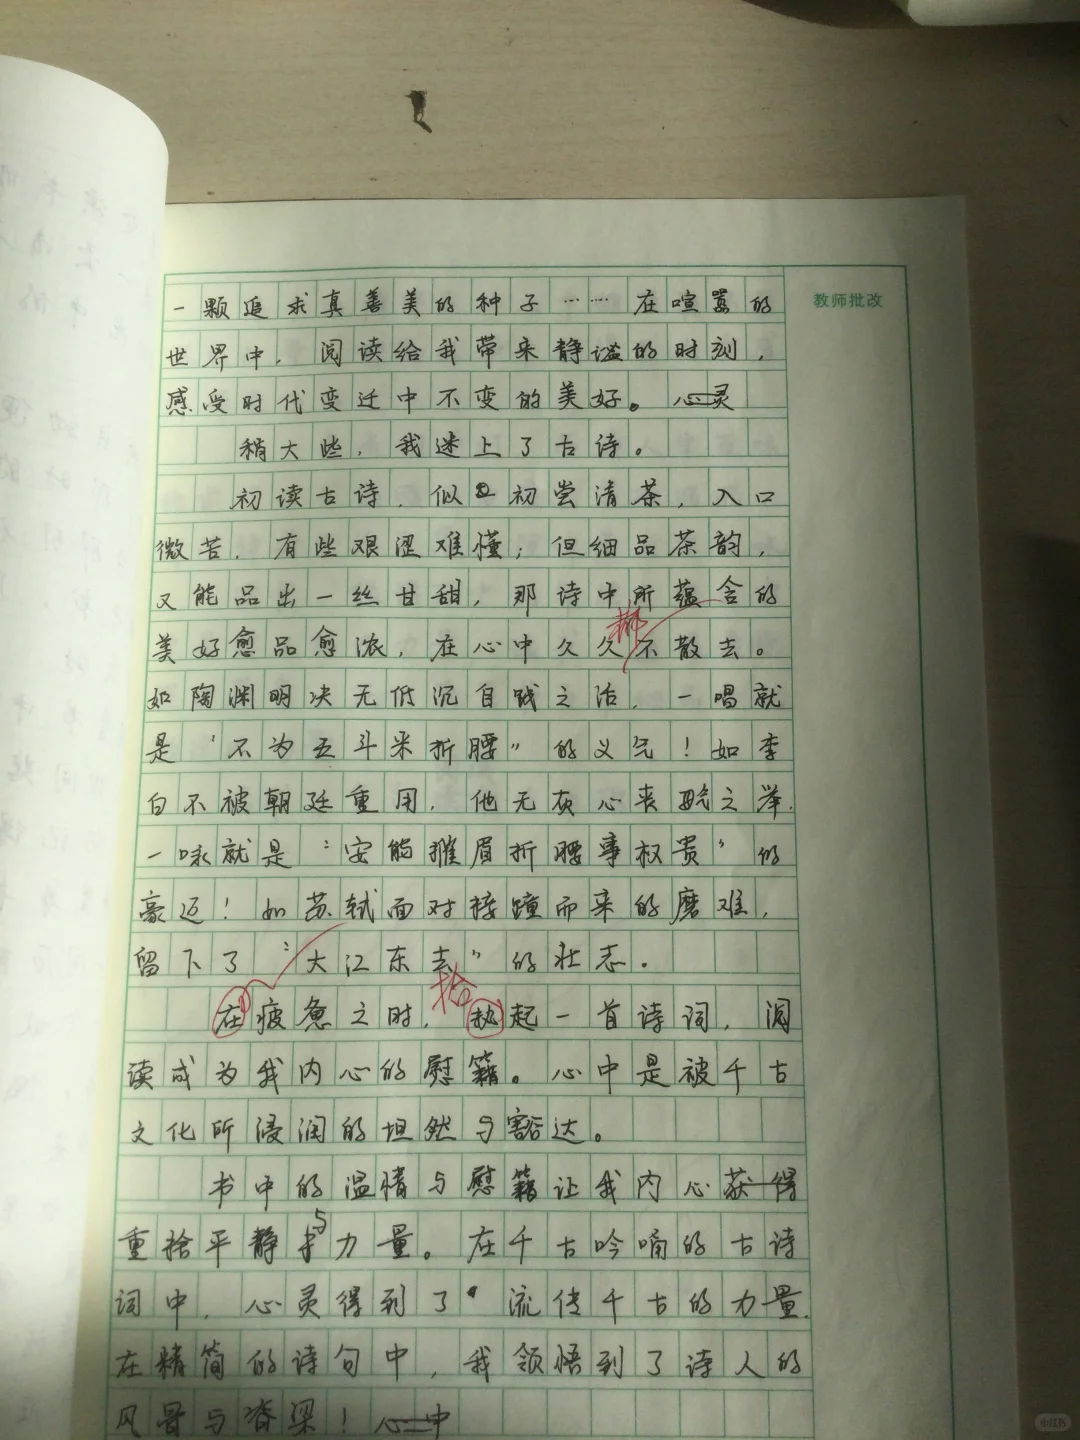 一颗追求真善美的种子……在喧嚣的
教师批改
世界中，阅读给我带来静谧的时刻，
感受时代变迁中不变的美好。心灵
稍大些，我迷上了古诗。
初读古诗，似初尝清茶，入口
微苦，有些艰涩难懂；但细品茶韵，
又能品出一丝甘甜，那诗中所蕴含的
都
美好愈品愈浓，在心中久久不散去。
如陶渊明决无低沉自贱之活，一唱就
是“不为五斗米折腰”的义气！如李
白不被朝廷重用，他无灰心丧之举，
一咏就是“安能摧眉折腰事权贵”的
豪迈！如苏轼面对接踵而来的磨难，
留下了“大江东去”的壮志。
拾
在疲惫之时，执起一首诗词，阅
读成为我内心的慰籍。心中是被千古
文化所浸润的坦然与豁达。
书中的温情与慰籍让我内心获得
重拾平静与力量。在千古吟喃的古诗
词中，心灵得到了流传千古的力量，
在精简的诗句中，我领悟到了诗人的
风骨与脊梁！心中
小红书